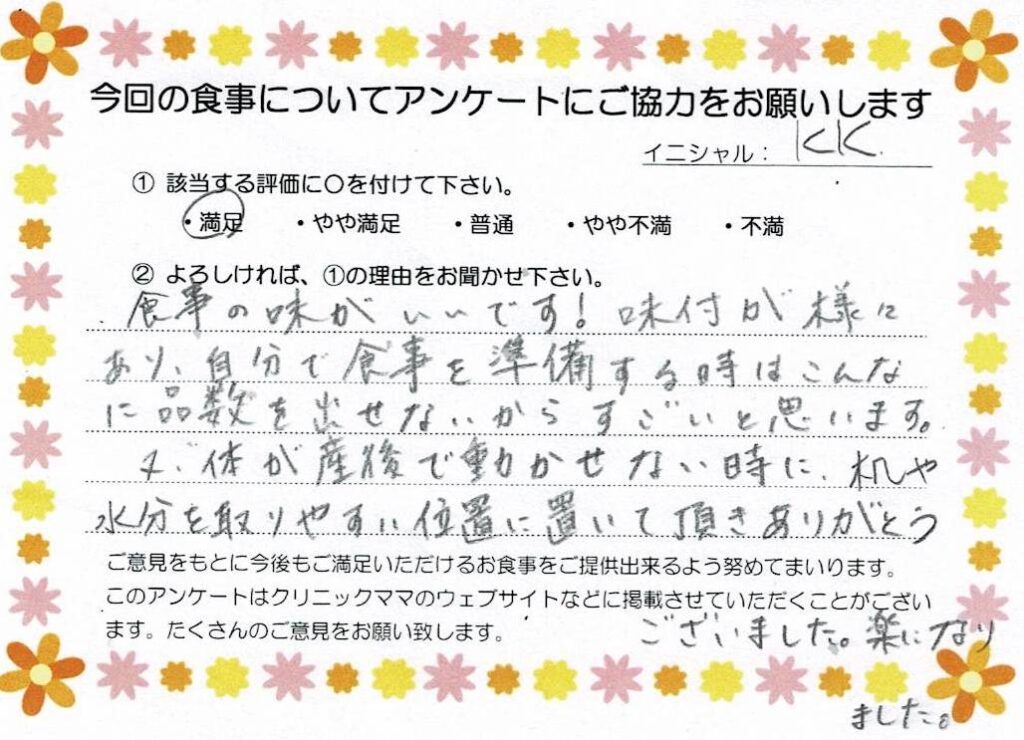 今回の食事についてアンケートにご協力をお願いします
イニシャル： KK.
① 該当する評価に〇を付けて下さい。
・満足 ・やや満足 ・普通 ・やや不満 ・不満
② よろしければ、①の理由をお聞かせ下さい。
食事の味がいいです! 味付が様に
あり、自分で食事を準備する時はこんな
に品数を出せないからすごいと思います。
又、体が産後で動かせない時に、机や
水分を取りやすい位置に置いて頂きありがとう
ご意見をもとに今後もご満足いただけるお食事をご提供出来るよう努めてまいります。
このアンケートはクリニックママのウェブサイトなどに掲載させていただくことがござい
ます。たくさんのご意見をお願い致します。
ございました。楽になり
ました。